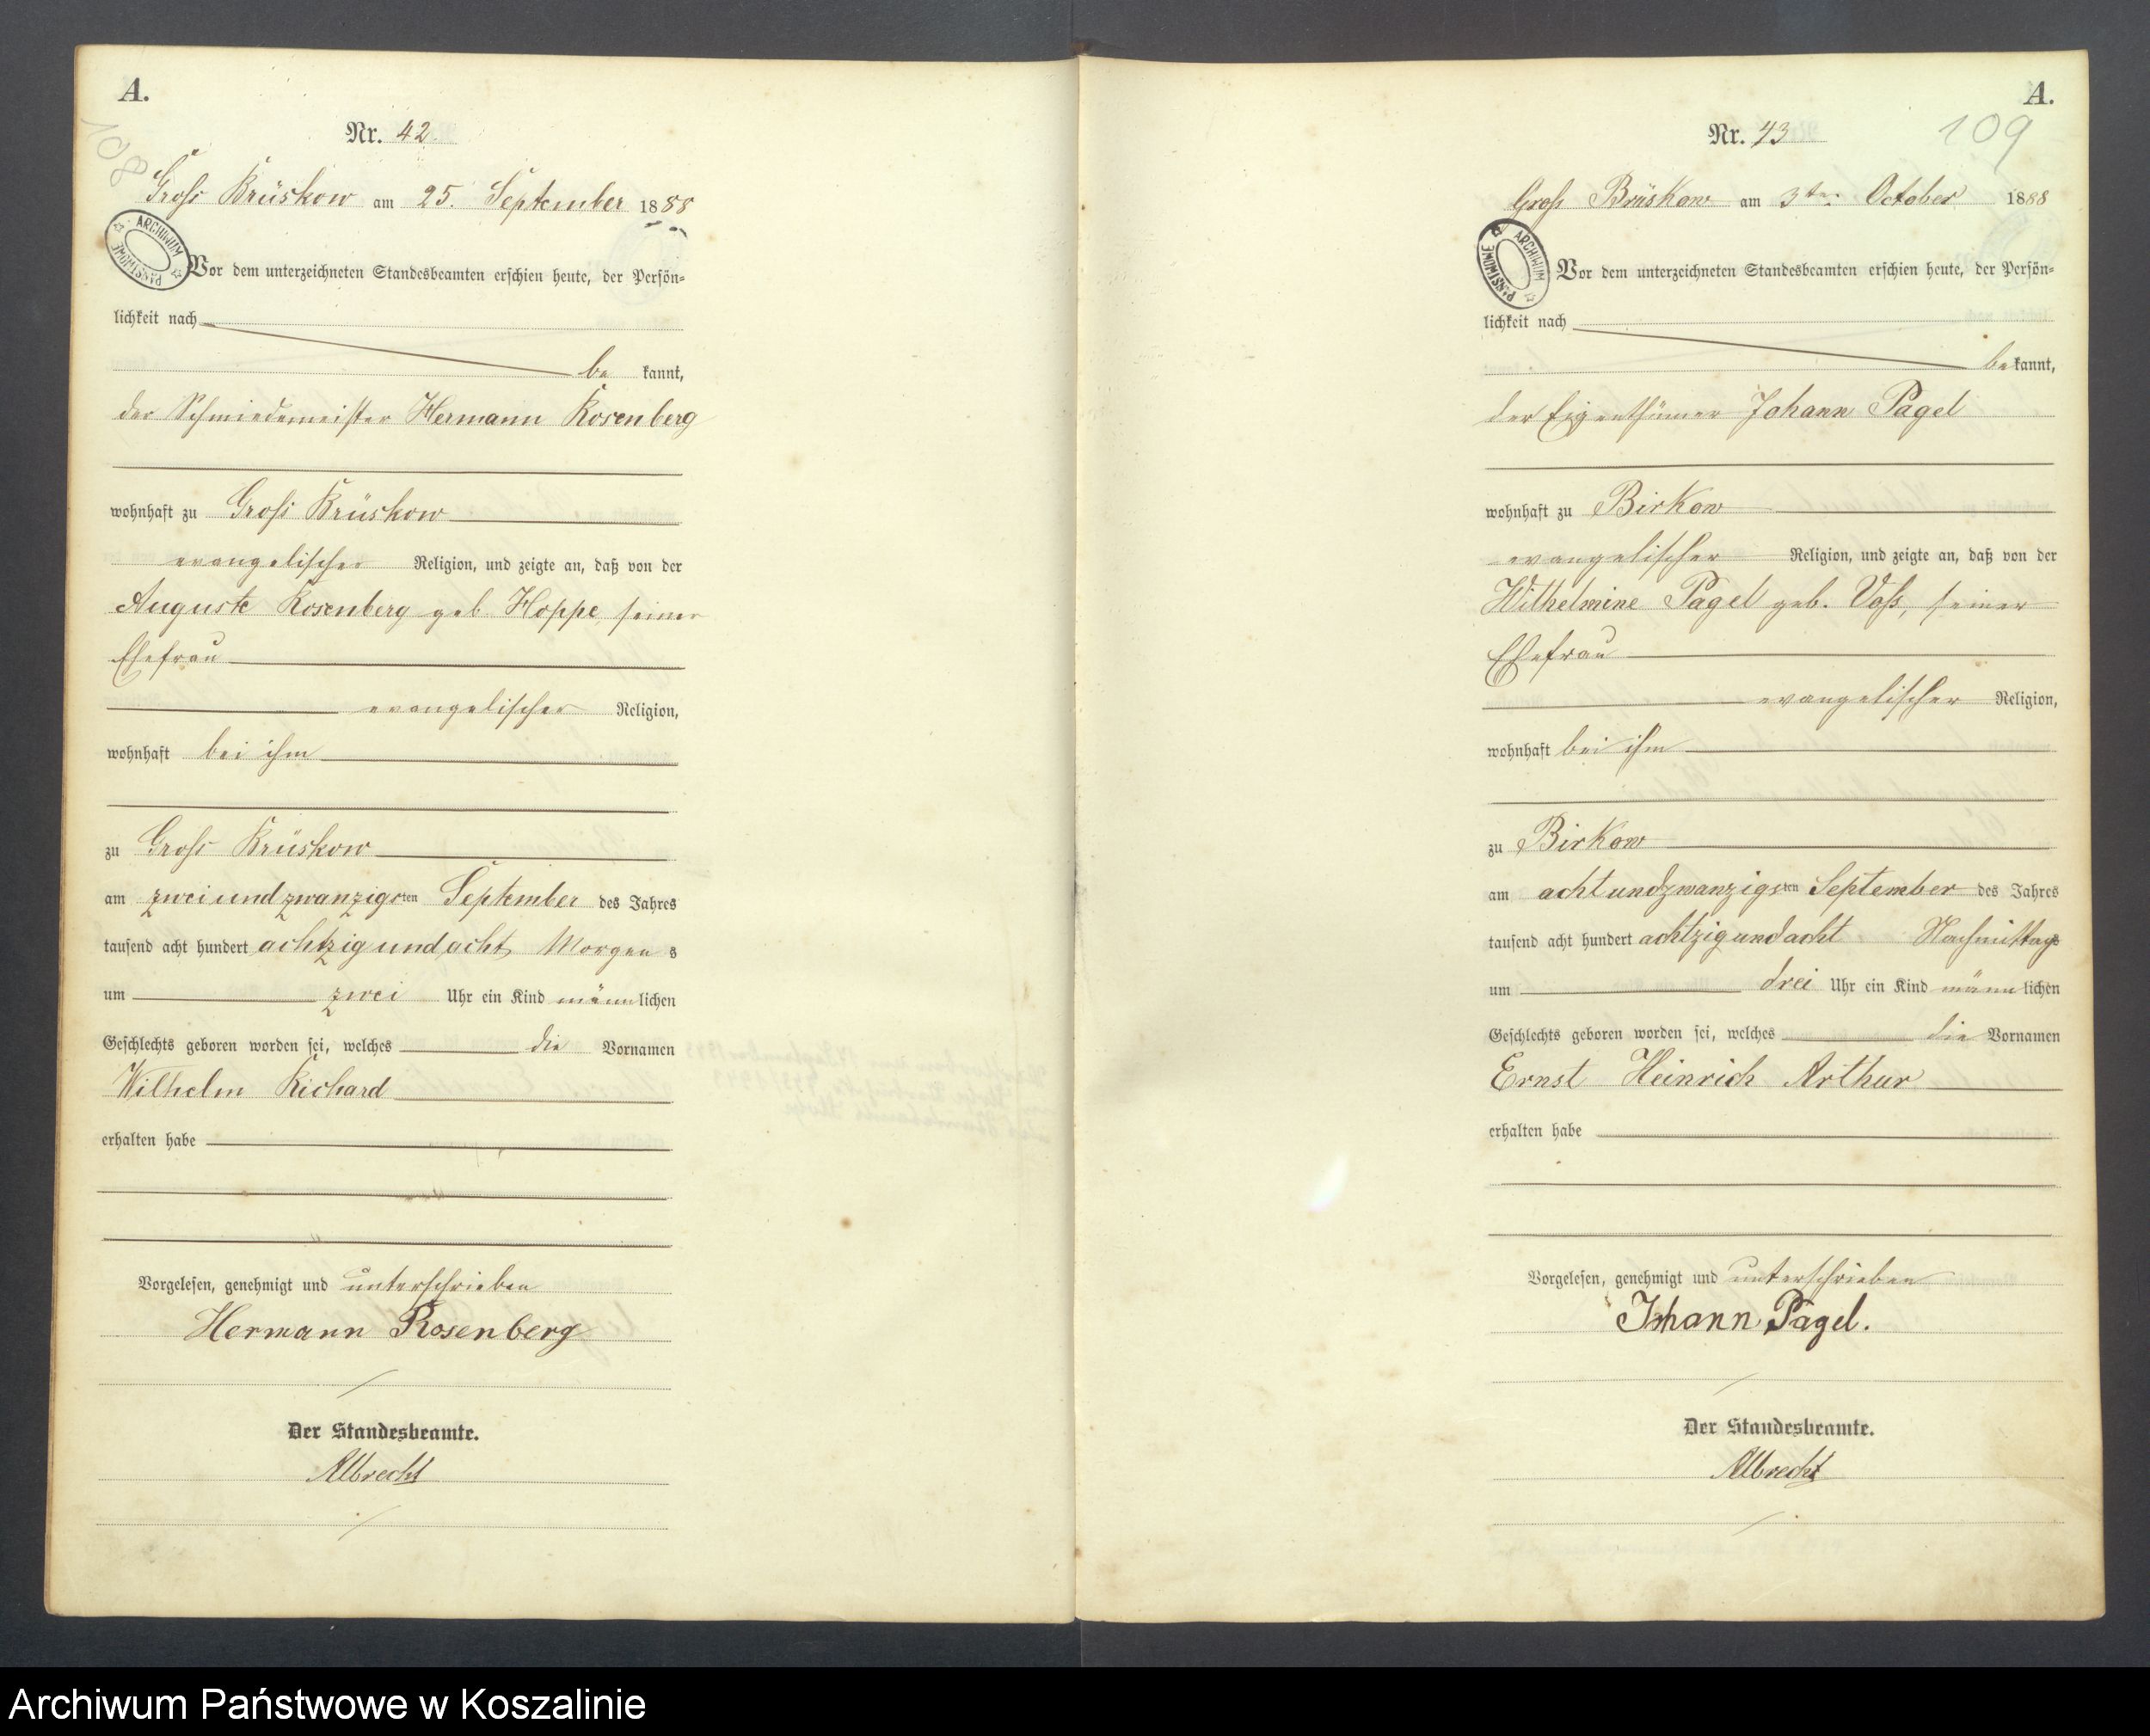 A.
108
Nr. 42.
Groß Brüskow am 25. September 1888
ARCHIWUM PAŃSTWOWE
Vor dem unterzeichneten Standesbeamten erschien heute, der Persön-
lichkeit nach
be kannt,
der Schmiedemeister Hermann Rosenberg
wohnhaft zu Groß Brüskow
evangelischer Religion, und zeigte an, daß von der
Auguste Rosenberg geb. Hoppe, seiner
Ehefrau
evangelischer Religion,
wohnhaft bei ihm
zu Groß Brüskow
am zweiundzwanzigsten September des Jahres
tausend acht hundert achtzig und acht Morgens
um zwei Uhr ein Kind männlichen
Geschlechts geboren worden sei, welches die Vornamen
Wilhelm Richard
erhalten habe
Vorgelesen, genehmigt und unterschrieben
Hermann Rosenberg
Der Standesbeamte.
Albrecht
A.
109
Nr. 43
Groß Brüskow am 3ten October 1888
ARCHIWUM PAŃSTWOWE
Vor dem unterzeichneten Standesbeamten erschien heute, der Persön-
lichkeit nach
bekannt,
der Eigenthümer Johann Pagel
wohnhaft zu Birkow
evangelischer Religion, und zeigte an, daß von der
Wilhelmine Pagel geb. Voß, seiner
Ehefrau
evangelischer Religion,
wohnhaft bei ihm
zu Birkow
am achtundzwanzigsten September des Jahres
tausend acht hundert achtzig und acht Nachmittags
um drei Uhr ein Kind männlichen
Geschlechts geboren worden sei, welches die Vornamen
Ernst Heinrich Arthur
erhalten habe
Vorgelesen, genehmigt und unterschrieben
Johann Pagel.
Der Standesbeamte.
Albrecht
Archiwum Państwowe w Koszalinie